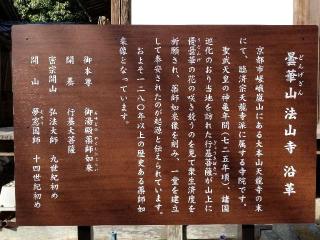 曇華山 法山寺 沿革
どんげさん
京都市嵯峨嵐山にある大本山天龍寺の末
にて、臨済宗天龍寺派に属する寺院です。
聖武天皇の神亀年間（七二五年頃）、諸国
巡化のおり当法を訪れた行基菩薩が山上に
優曇華の花の咲き競うのを見て衆生済度を
祈願され、薬師如来像を刻み、一堂を建立
して奉安されたのが起源と伝えられています。
およそ一二八〇年以上の歴史ある薬師如
来像となっています。
御本尊 御湯殿薬師如来
開基 行基大菩薩
密宗開山 弘法大師 九世紀初め
開山 夢窓国師 十四世紀初め